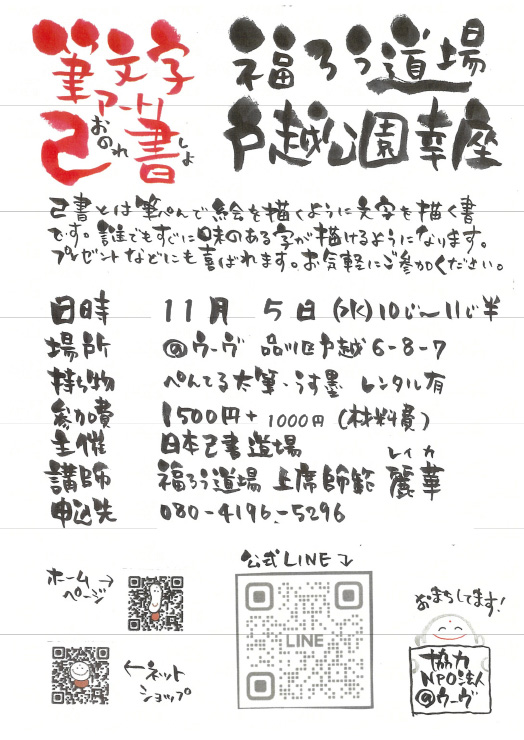 筆文字
アート！
己書
おのれ
しょ
福ろう道場
戸越公園幸座
己書とは筆ぺんで絵を描くように文字を描く書
です。誰でもすぐに味のある字が描けるようになります。
プレゼントなどにも喜ばれます。お気軽にご参加ください。
日時 11月 5日(水)10じ〜11じ半
場所 @ウーヴ 品川区戸越6-8-7
持ち物 ぺんてる太筆・うす墨 レンタル有
参加費 1500円+1000円(材料費)
主催 日本己書道場
レイカ
講師 福ろう道場 上席師範 麗華
申込先 080-4196-5296
公式LINE
ホーム
ページ
LINE
ネット
ショップ
おまちしてます!
協力
NPO法人
@ウーヴ